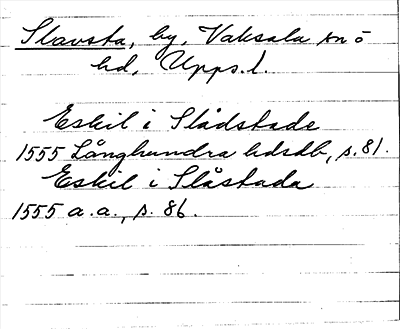 Slavsta, by, Vaksala sn o
hd, Upps.l.
Eskil i Slådstade
1555 Långhundra hdsdb, s. 81.
Eskil i Slåstada
1555 a.a., s. 86.